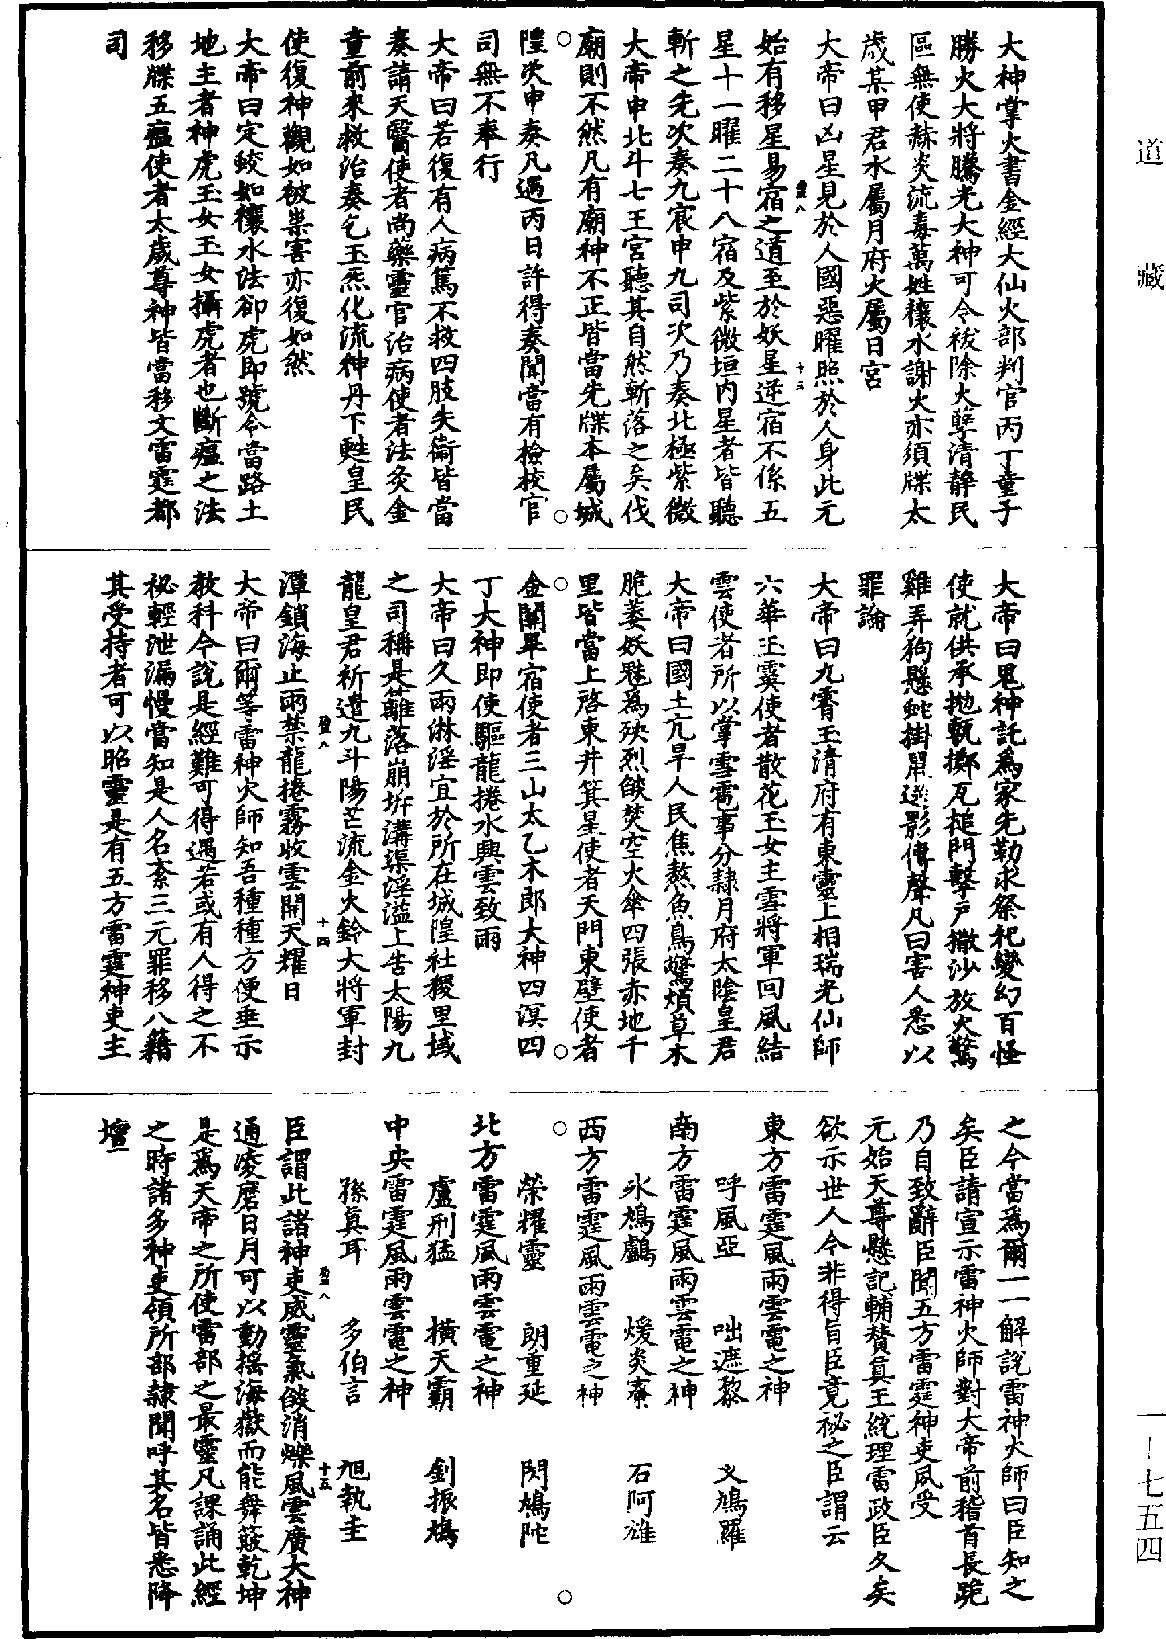 大神掌火書金經大仙火部判官丙丁童子
勝火大將騰光大神可令祓除火孽清靜民
區無使赫炎流毒萬姓穰水謝火亦須牒太
歲某甲君水屬月府火屬日宮
大帝曰凶星見於人國惡曜照於人身此元
始有移星易宿之道至於妖星逆宿不係五
星十一曜二十八宿及紫微垣內星者皆聽
斬之先次奏九宸申九司次乃奏北極紫微
大帝申北斗七王宮聽其自然斬落之矣伐
廟則不然凡有廟神不正皆當先牒本屬城
隍次申奏凡遇丙日許得奏聞當有檢校官
司無不奉行
大帝曰若復有人病篤不救四肢失衛皆當
奏請天醫使者尚藥靈官治病使者法灸金
童前來救治奏乞玉炁化流神丹下甦皇民
使復神觀如被祟害亦復如然
大帝曰定蛟如禳水法卻虎即號令當路土
地主者神虎玉女玉女攝虎者也斷瘟之法
移牒五瘟使者太歲尊神皆當移文雷霆都
司
大帝曰鬼神託為家先勒求祭祀變幻百怪
使就供承拋甎擲瓦搥門擊戶撒沙放火驚
雞弄狗懸蛇掛鼠遊影傳聲凡曰害人悉以
罪論
大帝曰九霄玉清府有東靈上相瑞光仙師
六華玉霙使者散花玉女主雲將軍回風結
雲使者所以掌雪雹事分隸月府太陰皇君
大帝曰國土亢旱人民焦熬魚鳥驚煩草木
脆萎妖魃為殃烈燄焚空火傘四張赤地千
里皆當上啓東井箕星使者天門東壁使者
金闕畢宿使者三山太乙木郎大神四溟四
丁大神即使驅龍捲水興雲致雨
大帝曰久雨淋淫宜於所在城隍社稷里域
之司稱是蘺落崩坼溝渠淫溢上告太陽九
龍皇君祈遣九斗陽芒流金火鈴大將軍封
潭鎖海止雨禁龍捲霧收雲開天耀日
大帝曰爾等雷神火師知吾種種方便垂示
教科今說是經難可得遇若或有人得之不
祕輕泄漏慢當知是人名紊三元罪移八籍
其受持者可以昭靈是有五方雷霆神吏主
之今當為爾一一解說雷神火師曰臣知之
矣臣請宣示雷神火師對大帝前稽首長跪
乃自致辭臣聞五方雷霆神吏夙受
元始天尊懸記輔贊真王統理雷政臣久矣
欲示世人今非得旨臣竟祕之臣謂云
東方雷霆風雨雲電之神
呼風亞　咄遮黎　义鳩羅
南方雷霆風雨雲電之神
氷鳩鸕　煖炎㢙　石阿雄
西方雷霆風雨雲電之神
榮耀靈　朗重延　閃鳩陀
北方雷霆風雨雲電之神
盧刑猛　橫天霸　劉振鳩
中央雷霆風雨雲電之神
孫真耳　多伯言　旭執圭
臣謂此諸神吏威靈氣燄消爍風雲廣大神
通凌磨日月可以動搖海嶽而能舞簸乾坤
是為天帝之所使雷部之最靈凡課誦此經
之時諸多神吏領所部隸聞呼其名皆悉降
壇
道藏
一—七五四
十三
十四
十五